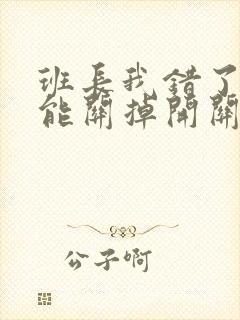 班長我錯了
能關掉開關
公子啊